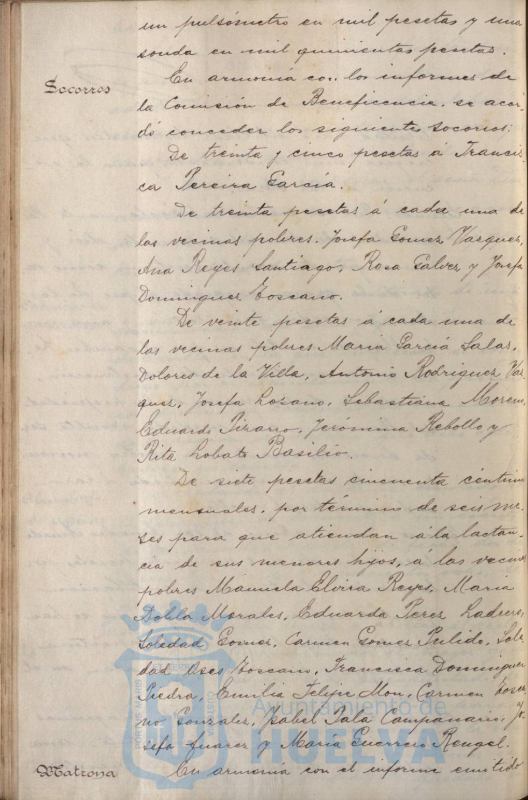 un pulsómetro en mil pesetas y una
sonda en mil quinientas pesetas.
Socorros
En armonía co.. los informes de
la Comisión de Beneficencia. se acor-
dó conceder los siguientes socorros:
De treinta y cinco pesetas á Francis-
ca Pereira García.
De treinta pesetas á cada una de
las vecinas pobres. Josefa Gomez Vazquez,
Ana Reyes Santiago, Rosa Galvez y Josefa
Dominguez Toscano.
De veinte pesetas á cada una de
las vecinas pobres Maria García Salas,
Dolores de la Villa, Antonio Rodriguez Vaz
quez, Josefa Lozano, Sebastiana Moreno,
Eduardo Pizarro, Jeronima Rebollo y
Rita Lobato Basilio.
De siete pesetas cincuenta céntimos
mensuales, por término de seis me-
ses para que atiendan á la lactan-
cia de sus menores hijos, á las vecinas
pobres Manuela Elvira Reyes, Maria
Dobla Morales, Eduarda Perez
Soledad Gomez, Carmen Gomez Pulido, Sole
dad Oses Toscano, Francisca Dominguez
Piedra, Emilia Felipe Mon, Carmen Tosca
no Gonzalez, Ysabel Pala Campanario, Jo
sefa Juarez y Maria Guerrero Rengel.
Matrona
En armonía con el informe emitido
Ayuntamiento de
HUELVA